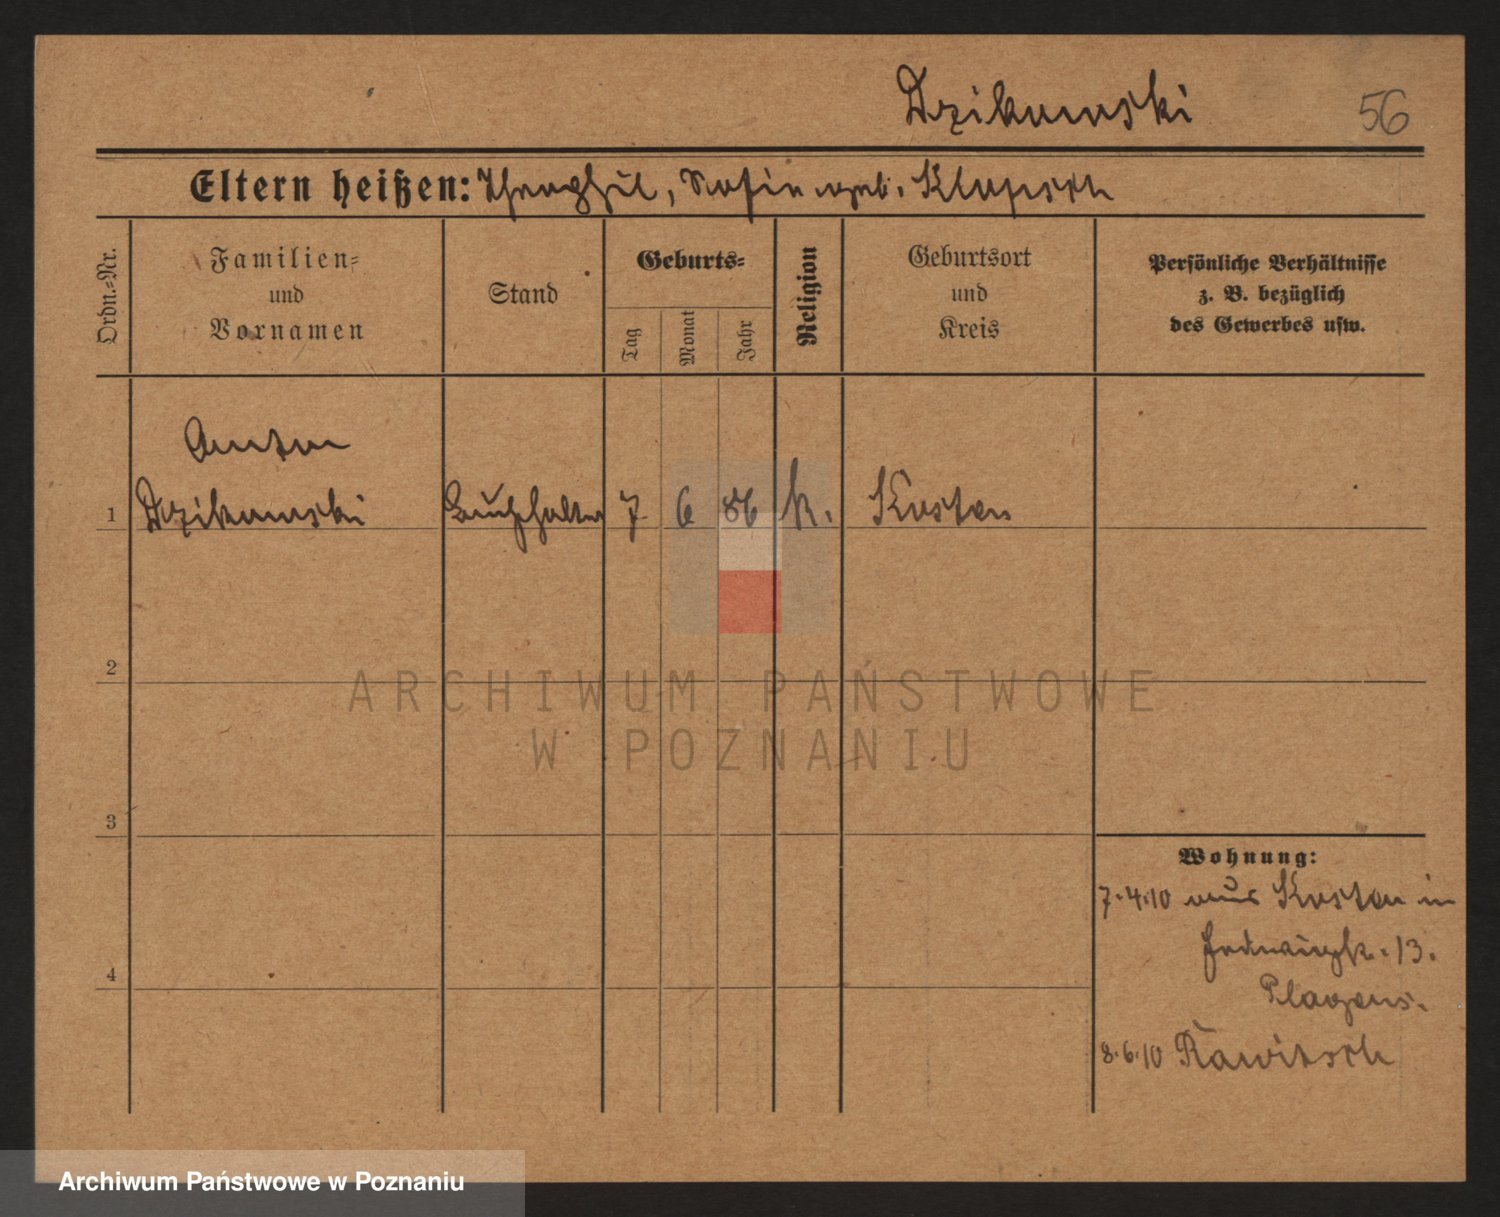 Dzikowski
56
Eltern heißen: Theophil, Sofia geb. Klopsch
Ordn.-Nr.
Familien-
und
Vornamen
Stand
Geburts-
Tag
Monat
Jahr
Religion
Geburtsort
und
Kreis
Persönliche Verhältnisse
z. B. bezüglich
des Gewerbes usw.
Anton
1 Dzikowski Buchhalter 7 6 86 k. Kosten
2
3
4
Wohnung:
7.4.10 aus Kosten in
13.
8.6.10 Rawitsch
ARCHIWUM PAŃSTWOWE
W POZNANIU
Archiwum Państwowe w Poznaniu